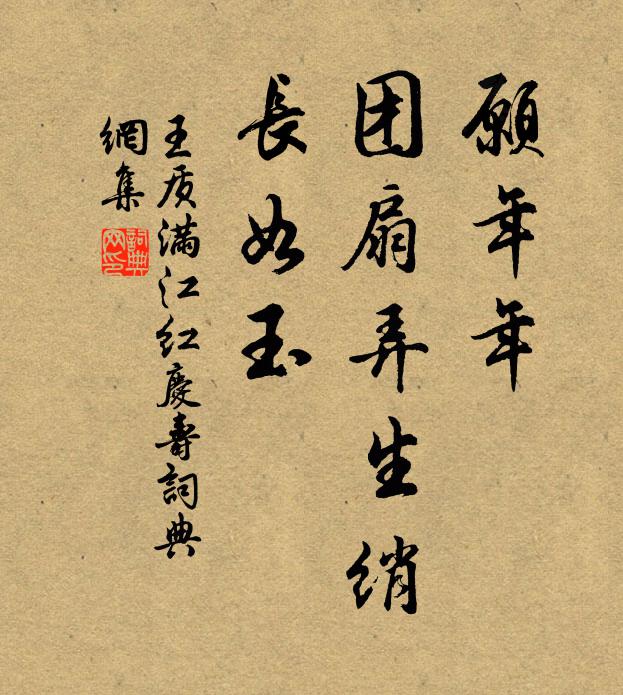 願年年
团扇弄生绡
長如玉
王质满江红慶壽詞典
網集
詞典网印